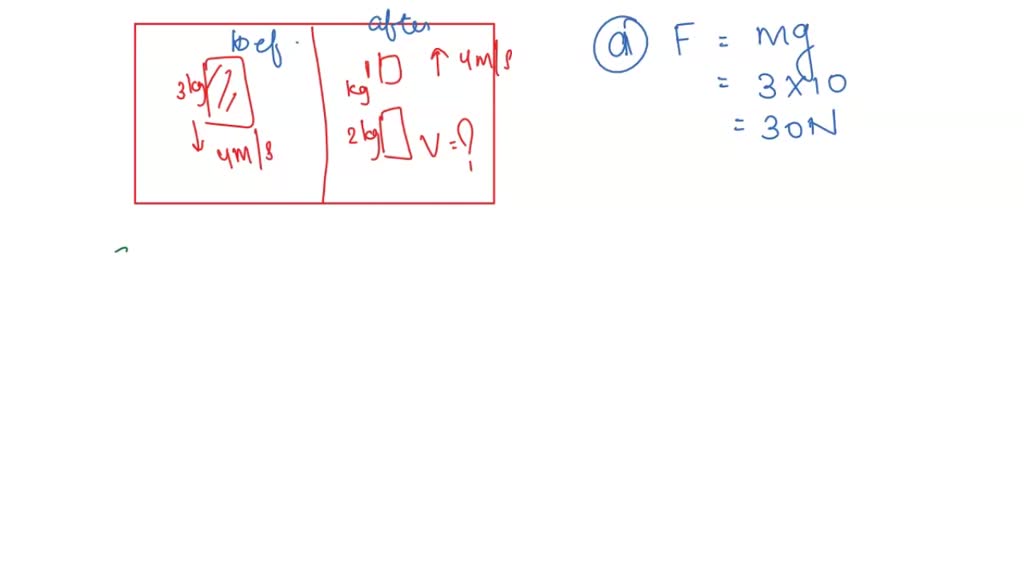 bef.
3kg
↓ 4m/s
after
1 kg ↑ 4m/s
2kg V=?
a F = mg
= 3×10
= 30N